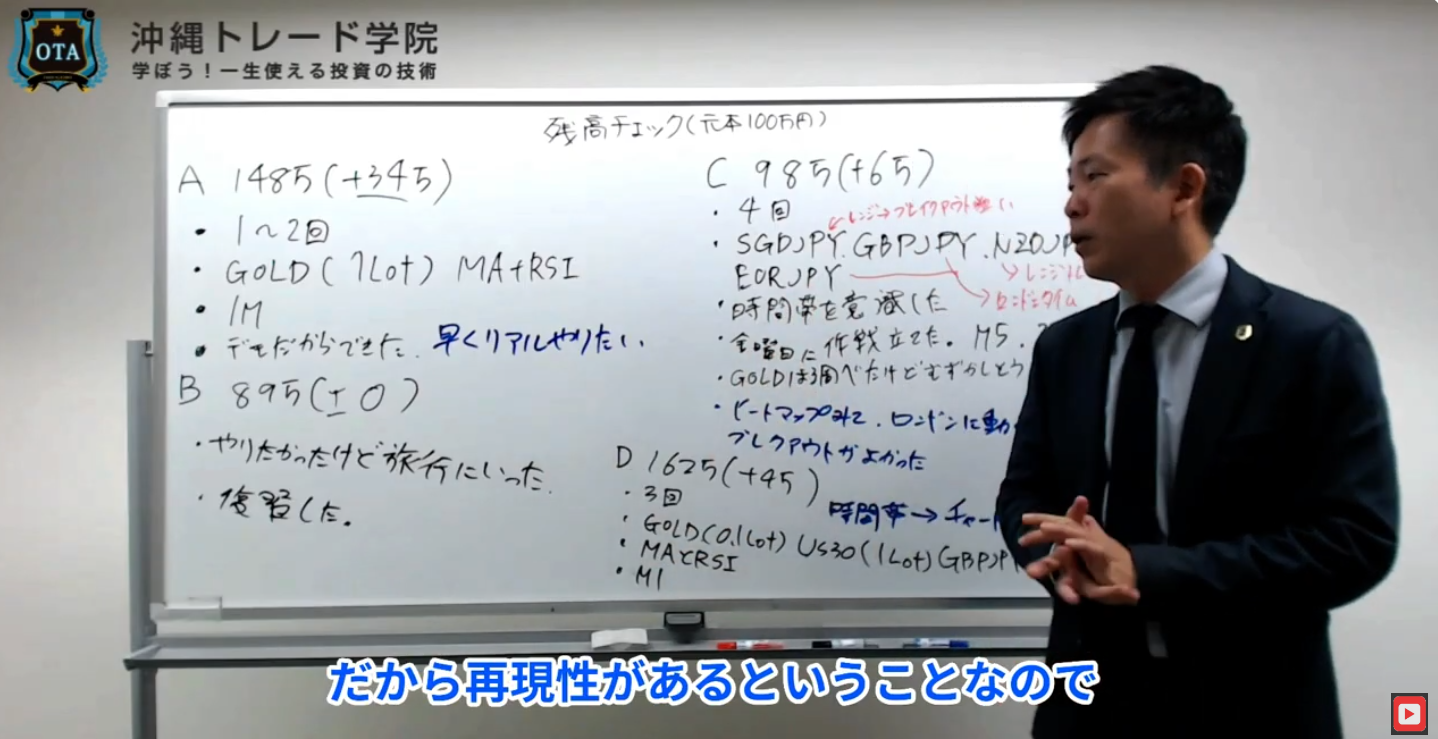 OTA
沖縄トレード学院
学ぼう！一生使える投資の技術
残高チェック(元本100万円)
A 1485(+345)
・1〜2回
・GOLD(1Lot) MA+RSI
・1M
・デモだからできた. 早くリアルやりたい
B 895(±0)
・やりたかったけど旅行にいった.
・復習した。
C 985(+65)
・4回 レンジ→ブレイクアウト
・SGDJPY.GBPJPY.NZDJP
EORJPY →レンジ
・時間帯を意識した ロンドンタイム
・金曜日に作戦立てた。M5.
・GOLDは調べたけどむずかしそう
・ヒートマップみて、ロンドンに動
ブレクアウトがよかった
時間帯→チャート
D 1625(+45)
・3回
・GOLD(0.1Lot) US30(1Lot) GBPJP
・MAとRSI
・M1
だから再現性があるということなので